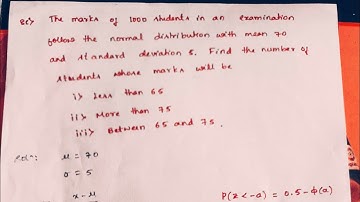 8c) The marks of 1000 students in an examination
follows the normal distribution with mean 70
and standard deviation 5. Find the number of
students whose marks will be
i) Less than 65
ii) More than 75
iii) Between 65 and 75.
Soln: μ = 70
σ = 5
x - μ
P(z < -a) = 0.5 - φ(a)